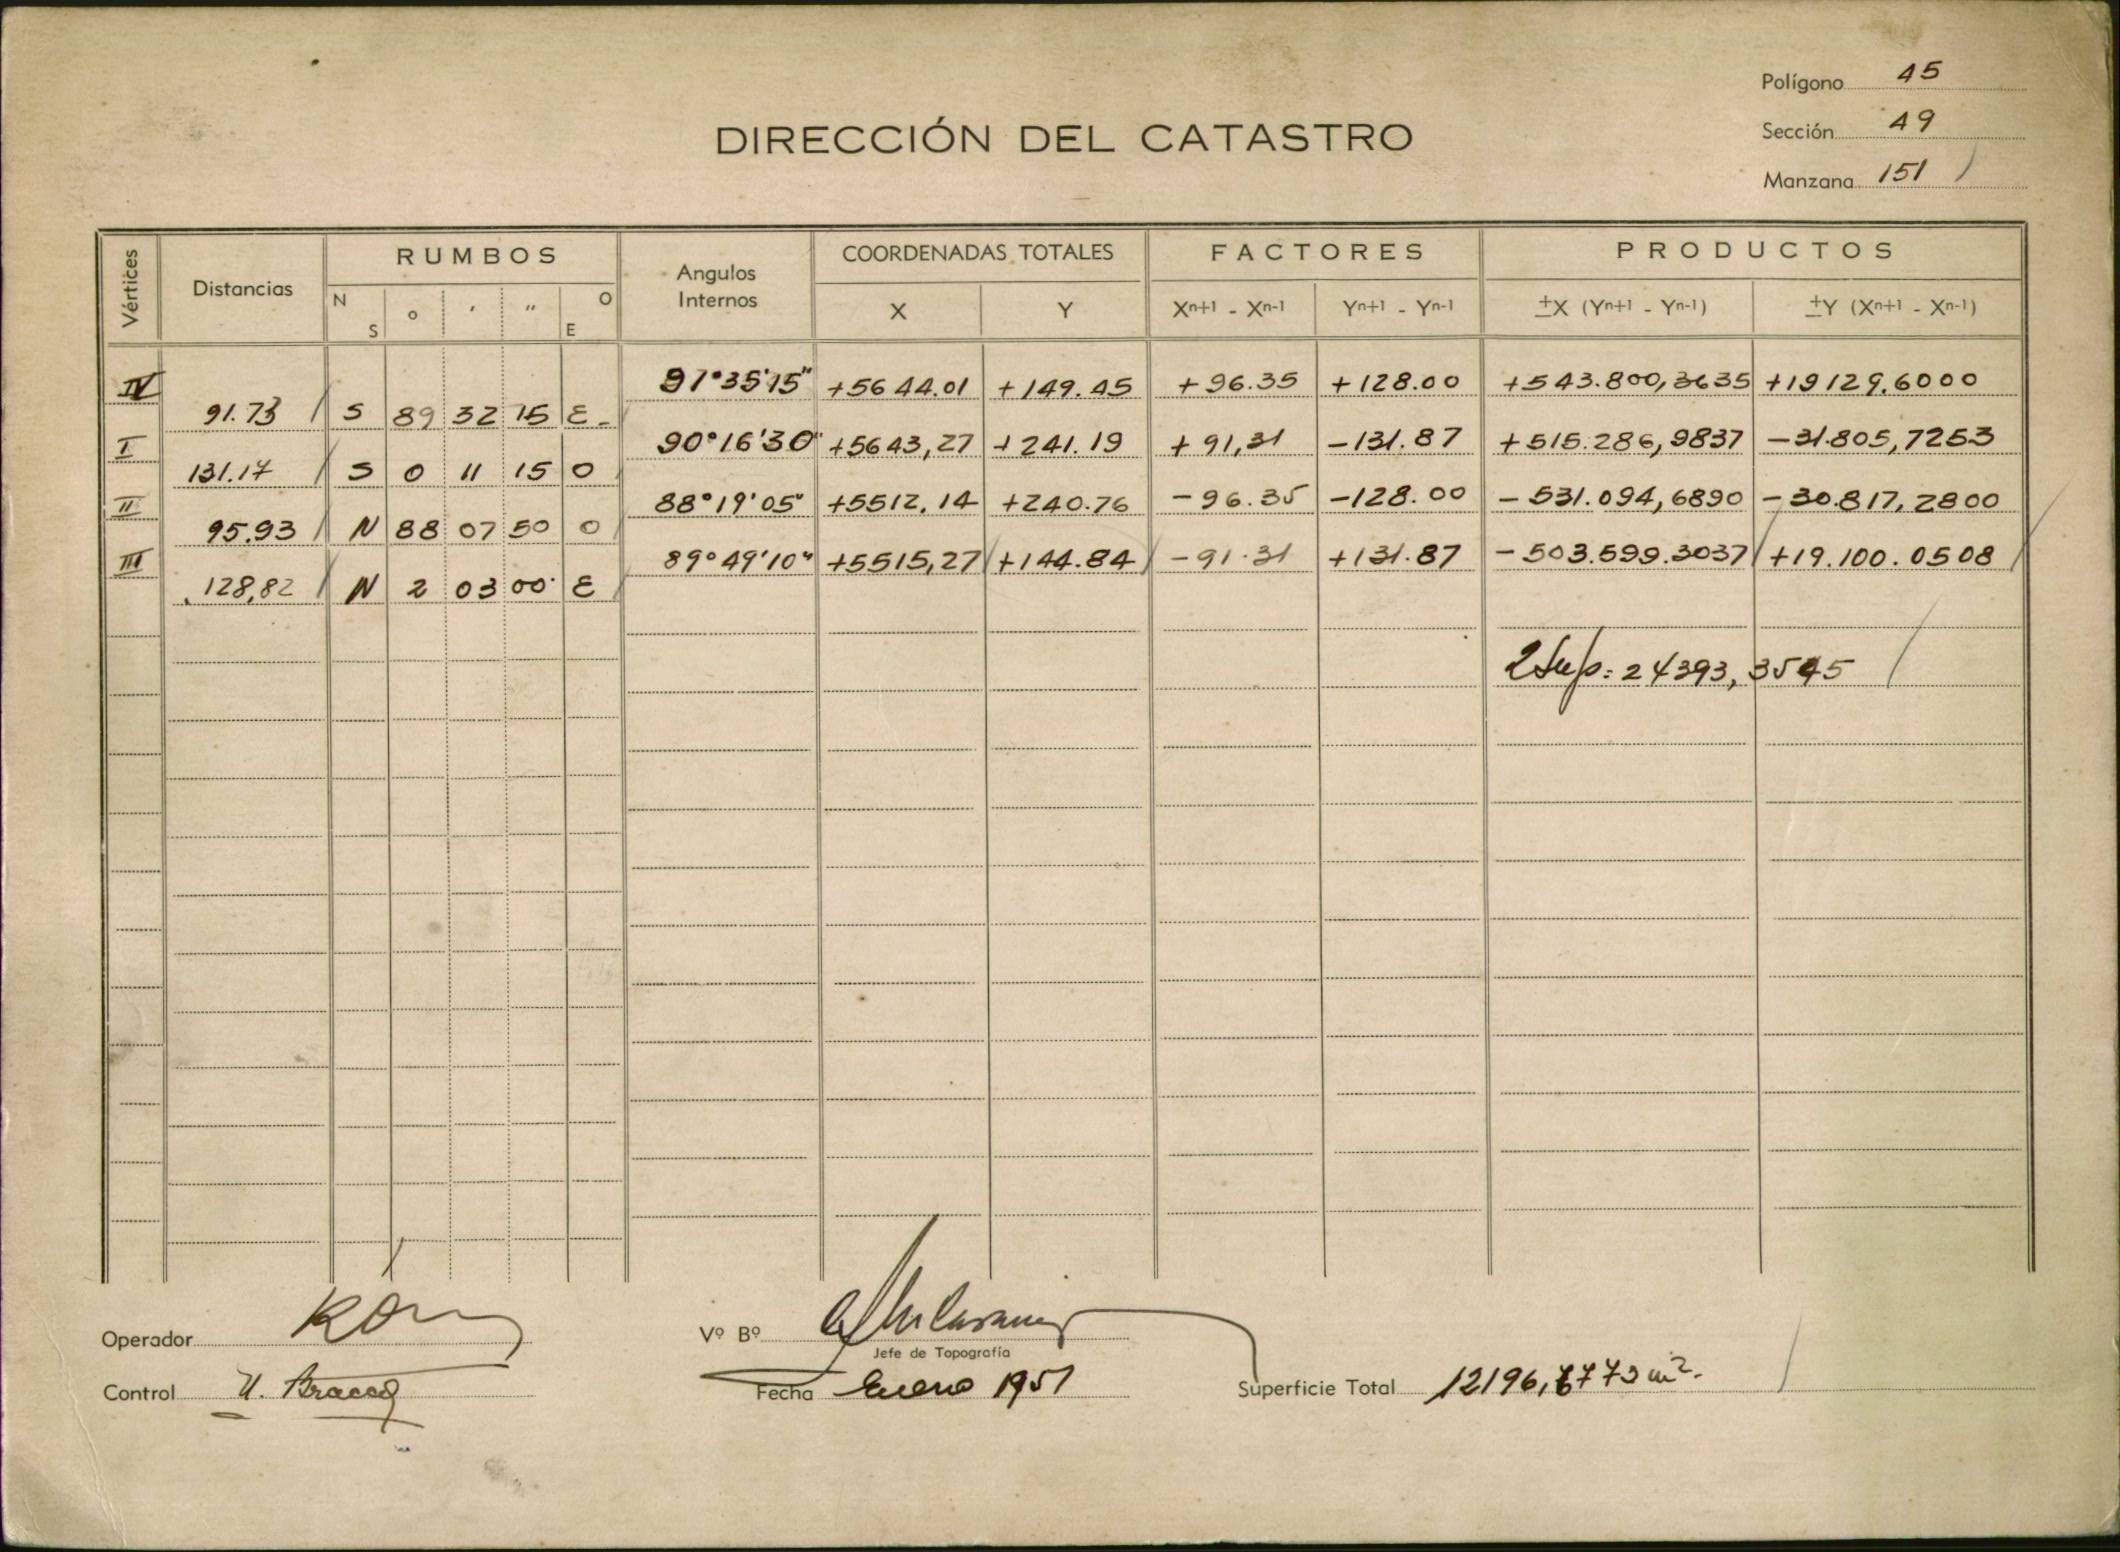 Polígono 45
Sección 49
Manzana 151
DIRECCIÓN DEL CATASTRO
Vértices Distancias RUMBOS Angulos Internos COORDENADAS TOTALES FACTORES PRODUCTOS
N S o ' '' O E X Y Xn+1 - Xn-1 Yn+1 - Yn-1 ±X (Yn+1 - Yn-1) ±Y (Xn+1 - Xn-1)
IV 91°35'15" +5644.01 +149.45 +96.35 +128.00 +543.800,3635 +19129,6000
91.73 S 89 32 15 E
I 90°16'30" +5643,27 +241.19 +91,31 -131.87 +515.286,9837 -31.805,7253
131.17 S 0 11 15 O
II 88°19'05" +5512,14 +240.76 -96.35 -128.00 -531.094,6890 -30.817,2800
95.93 N 88 07 50 O
III 89°49'10" +5515,27 +144.84 -91.31 +131.87 -503.599.3037 +19.100.0508
128,82 N 2 03 00 E
2Sup: 24393,3545
Operador
Vº Bº
Jefe de Topografía
Control U. Bracco
Fecha Enero 1951
Superficie Total 12196,6773 m².